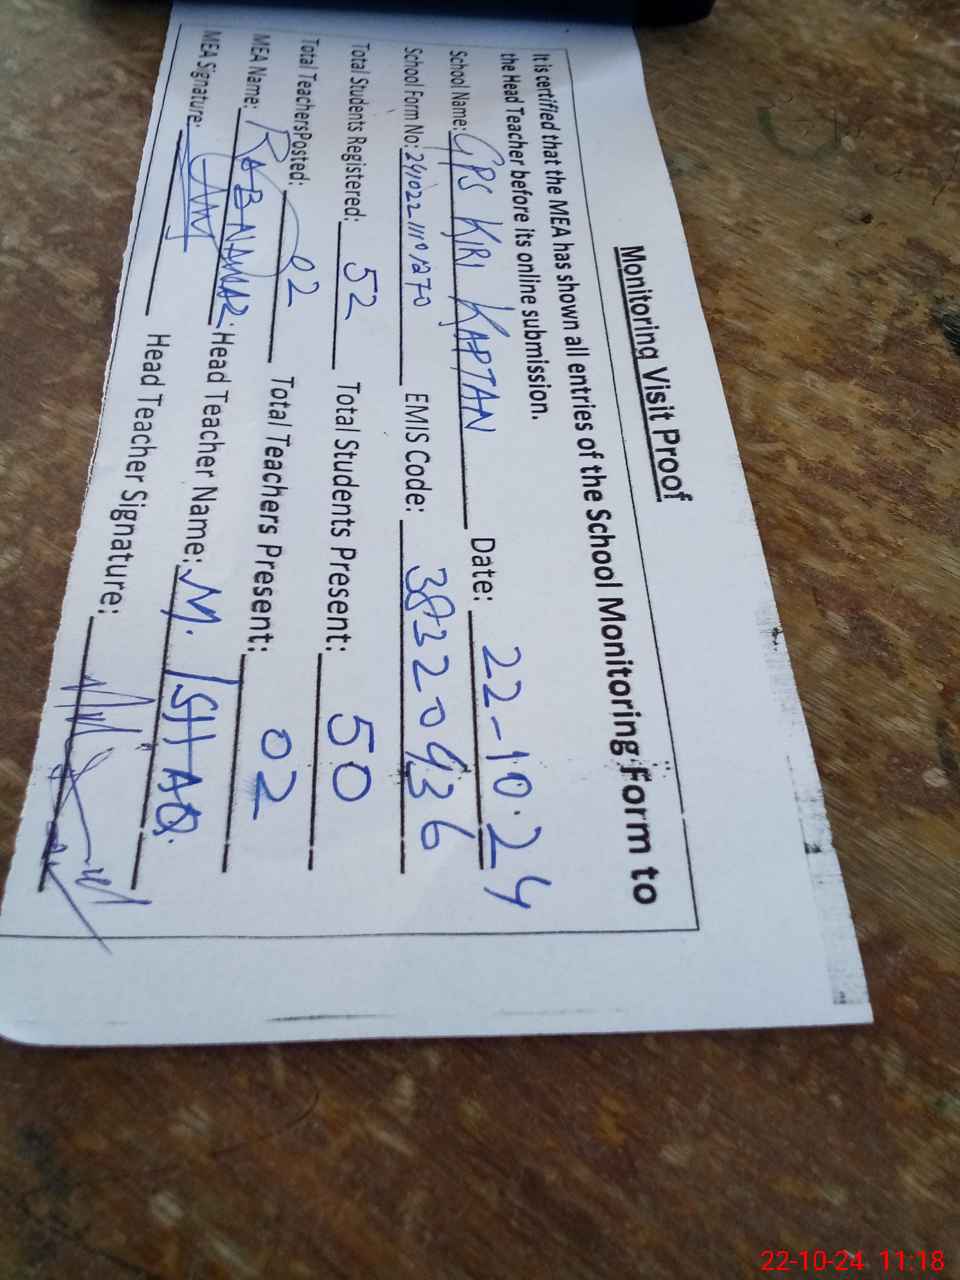 Monitoring Visit Proof
It is certified that the MEA has shown all entries of the School Monitoring Form to
the Head Teacher before its online submission.
School Name: GPS KIRI KAPTAN Date: 22-10-24
School Form No: EMIS Code: 38320936
Total Students Registered: 52 Total Students Present: 50
Total TeachersPosted: 02 Total Teachers Present: 02
MEA Name: RAB NAWAZ Head Teacher Name: M. ISHAQ
MEA Signature: Head Teacher Signature:
22-10-24 11:18